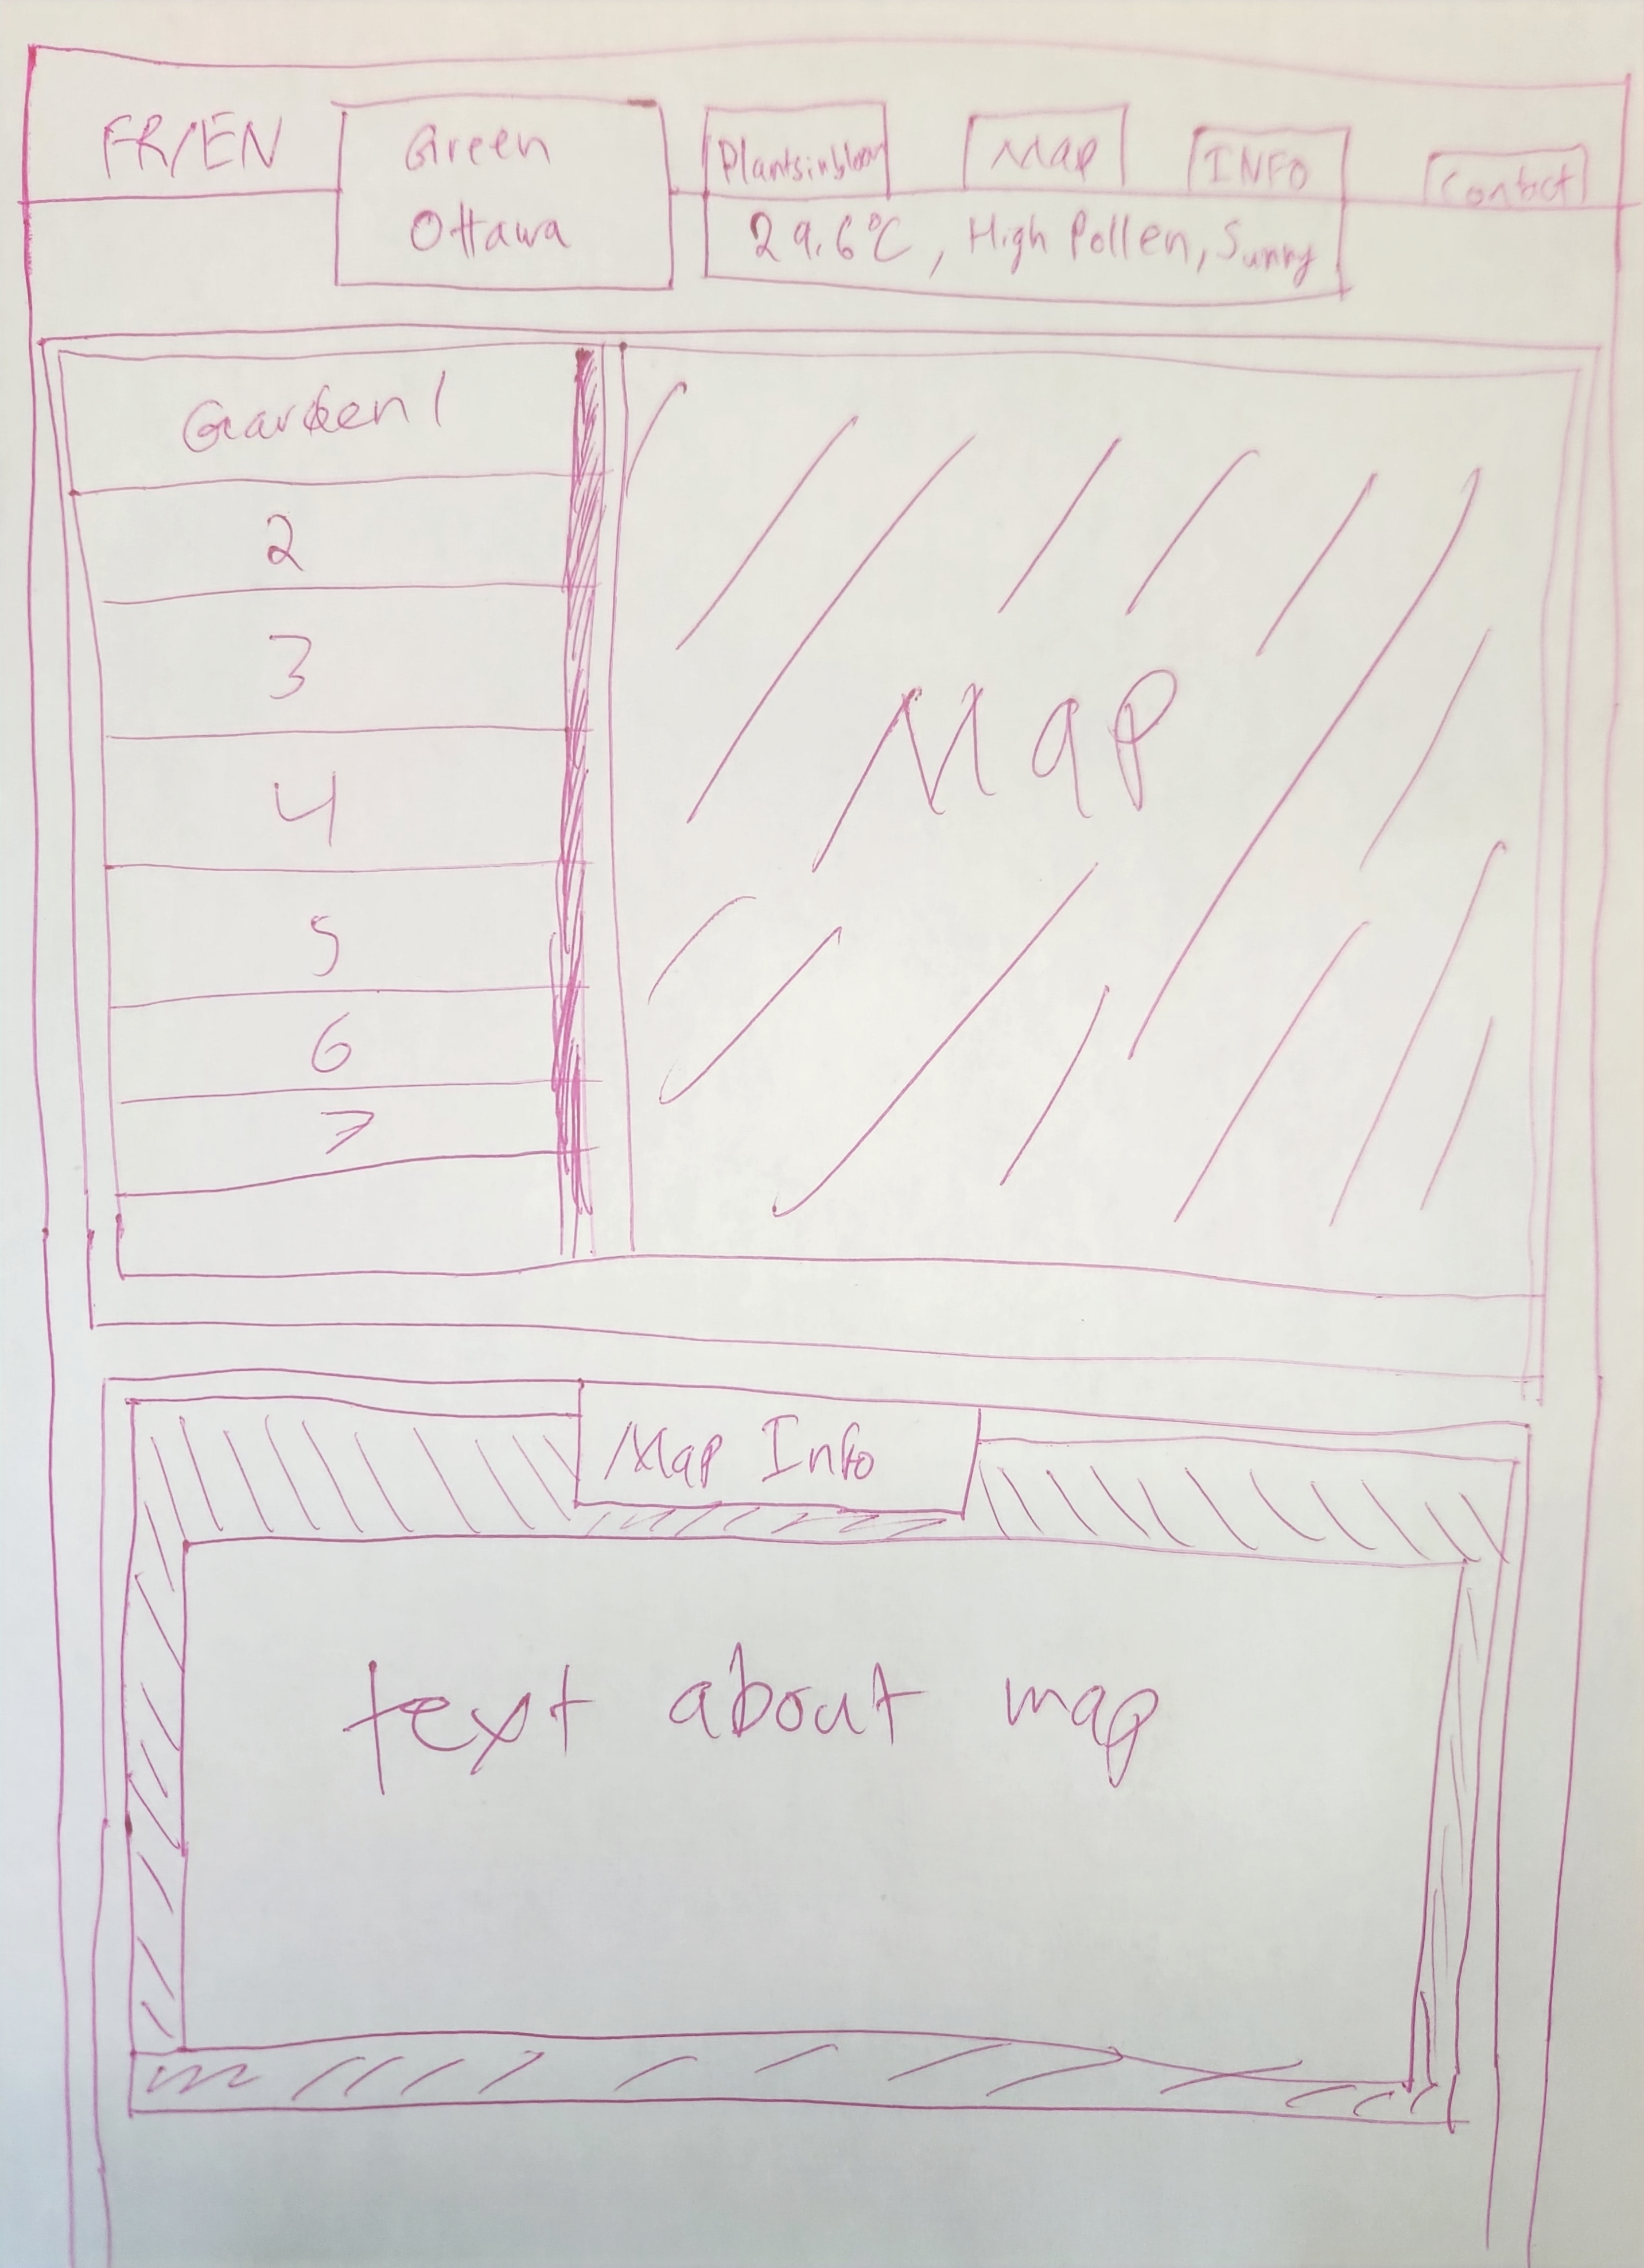 FR/EN
Green
Ottawa
Plantsinbloom
Map
INFO
Contact
29.6°C, High Pollen, Sunny
Garden 1
2
3
4
5
6
7
Map
Map Info
text about map